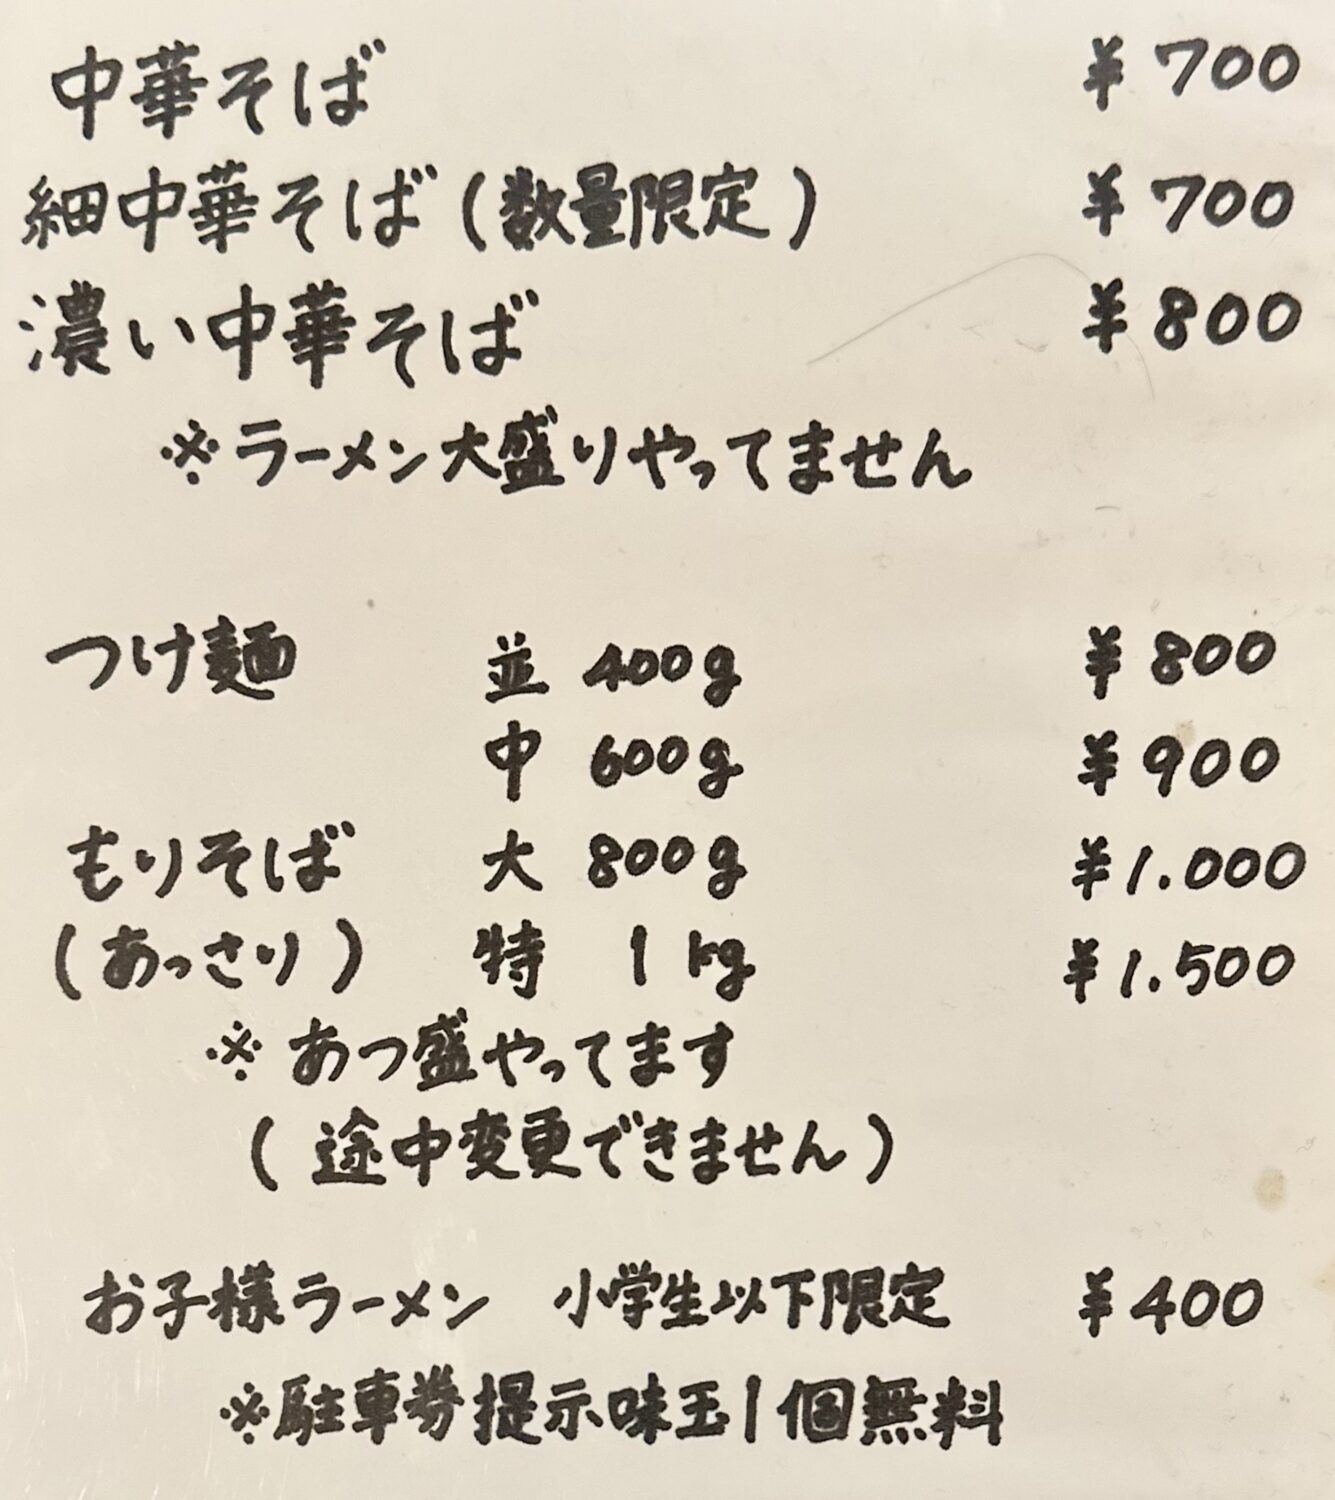 中華そば ¥700
細中華そば(数量限定) ¥700
濃い中華そば ¥800
※ラーメン大盛りやってません
つけ麺 並 400g ¥800
中 600g ¥900
もりそば 大 800g ¥1.000
(あっさり) 特 1kg ¥1.500
※あつ盛やってます
(途中変更できません)
お子様ラーメン 小学生以下限定 ¥400
※駐車券提示味玉1個無料